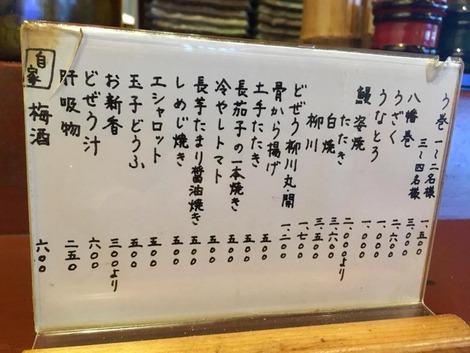 う巻 一〜二名様 一、五〇〇
三〜四名様 三、〇〇〇
八幡巻 二、六〇〇
うざく 一、〇〇〇
うなとろ 一、〇〇〇
鰻 姿焼 二、〇〇〇より
たたき 三、六〇〇
白焼 三、五〇〇
柳川 一、七〇〇
どぜう柳川丸・開 一、二〇〇
骨から揚げ 五〇〇
土手たたき 五〇〇
長茄子の一本焼き 五〇〇
冷やしトマト 五〇〇
長芋たまり醤油焼き 五〇〇
しめじ焼き 五〇〇
エシャロット 五〇〇
玉子どうふ 五〇〇
お新香 三〇〇より
どぜう汁 六〇〇
肝吸物 二五〇
自家 梅酒 六〇〇